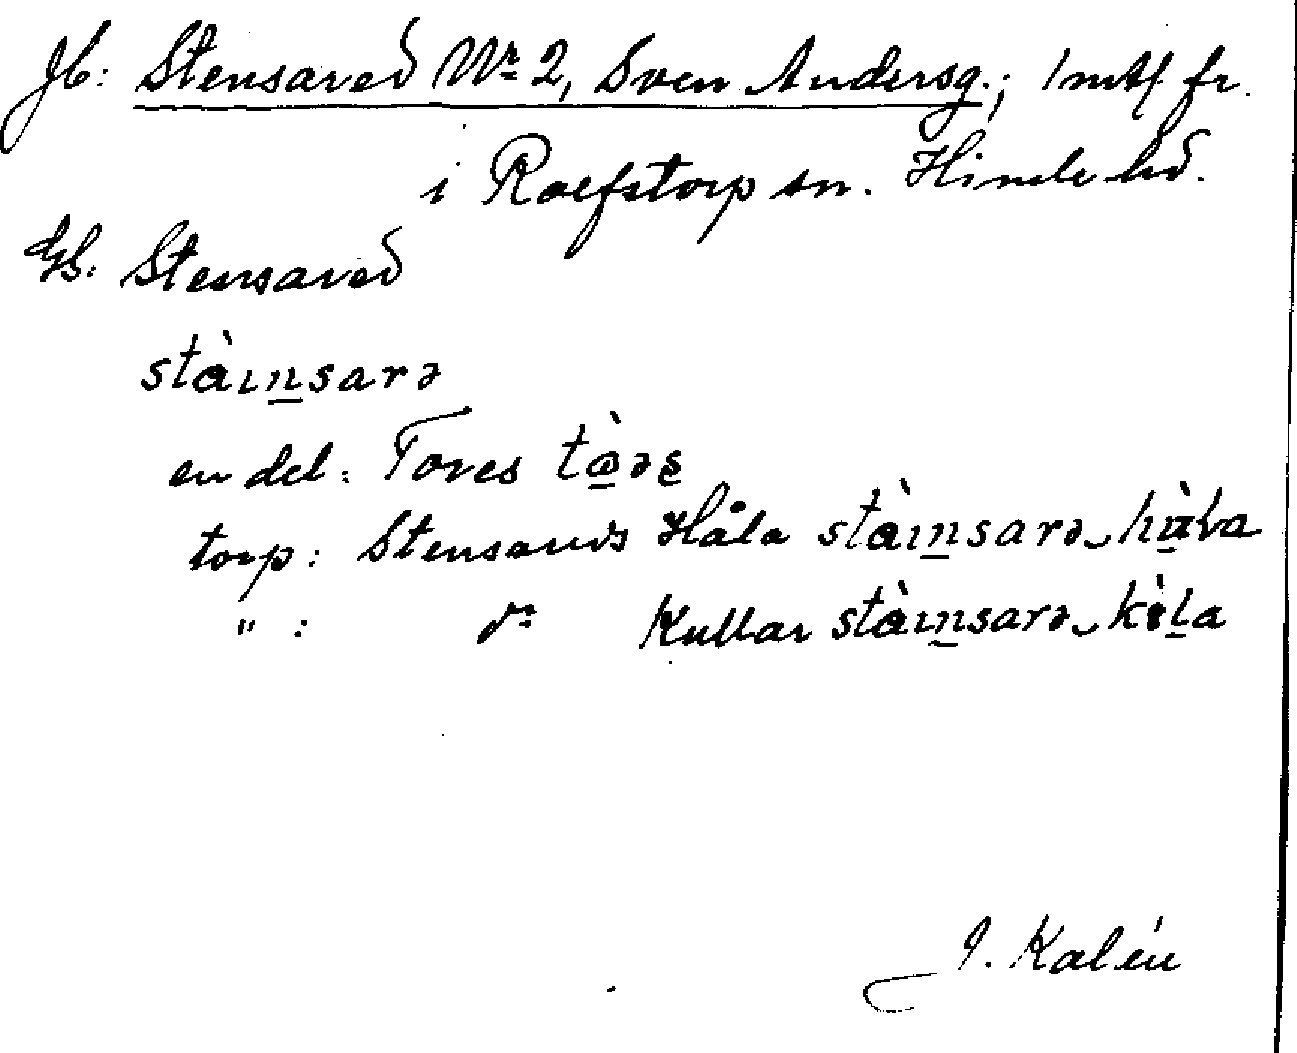 Jb: Stensared Nr 2, Sven Andersg.; 1 mtl fr.
i Rolfstorp sn. Himle hd.
Gb: Stensared
stàınsarə
en del: Tores
torp: Stensareds Håla stàınsarə
" : do Kullar stàınsarə
J. Kalén